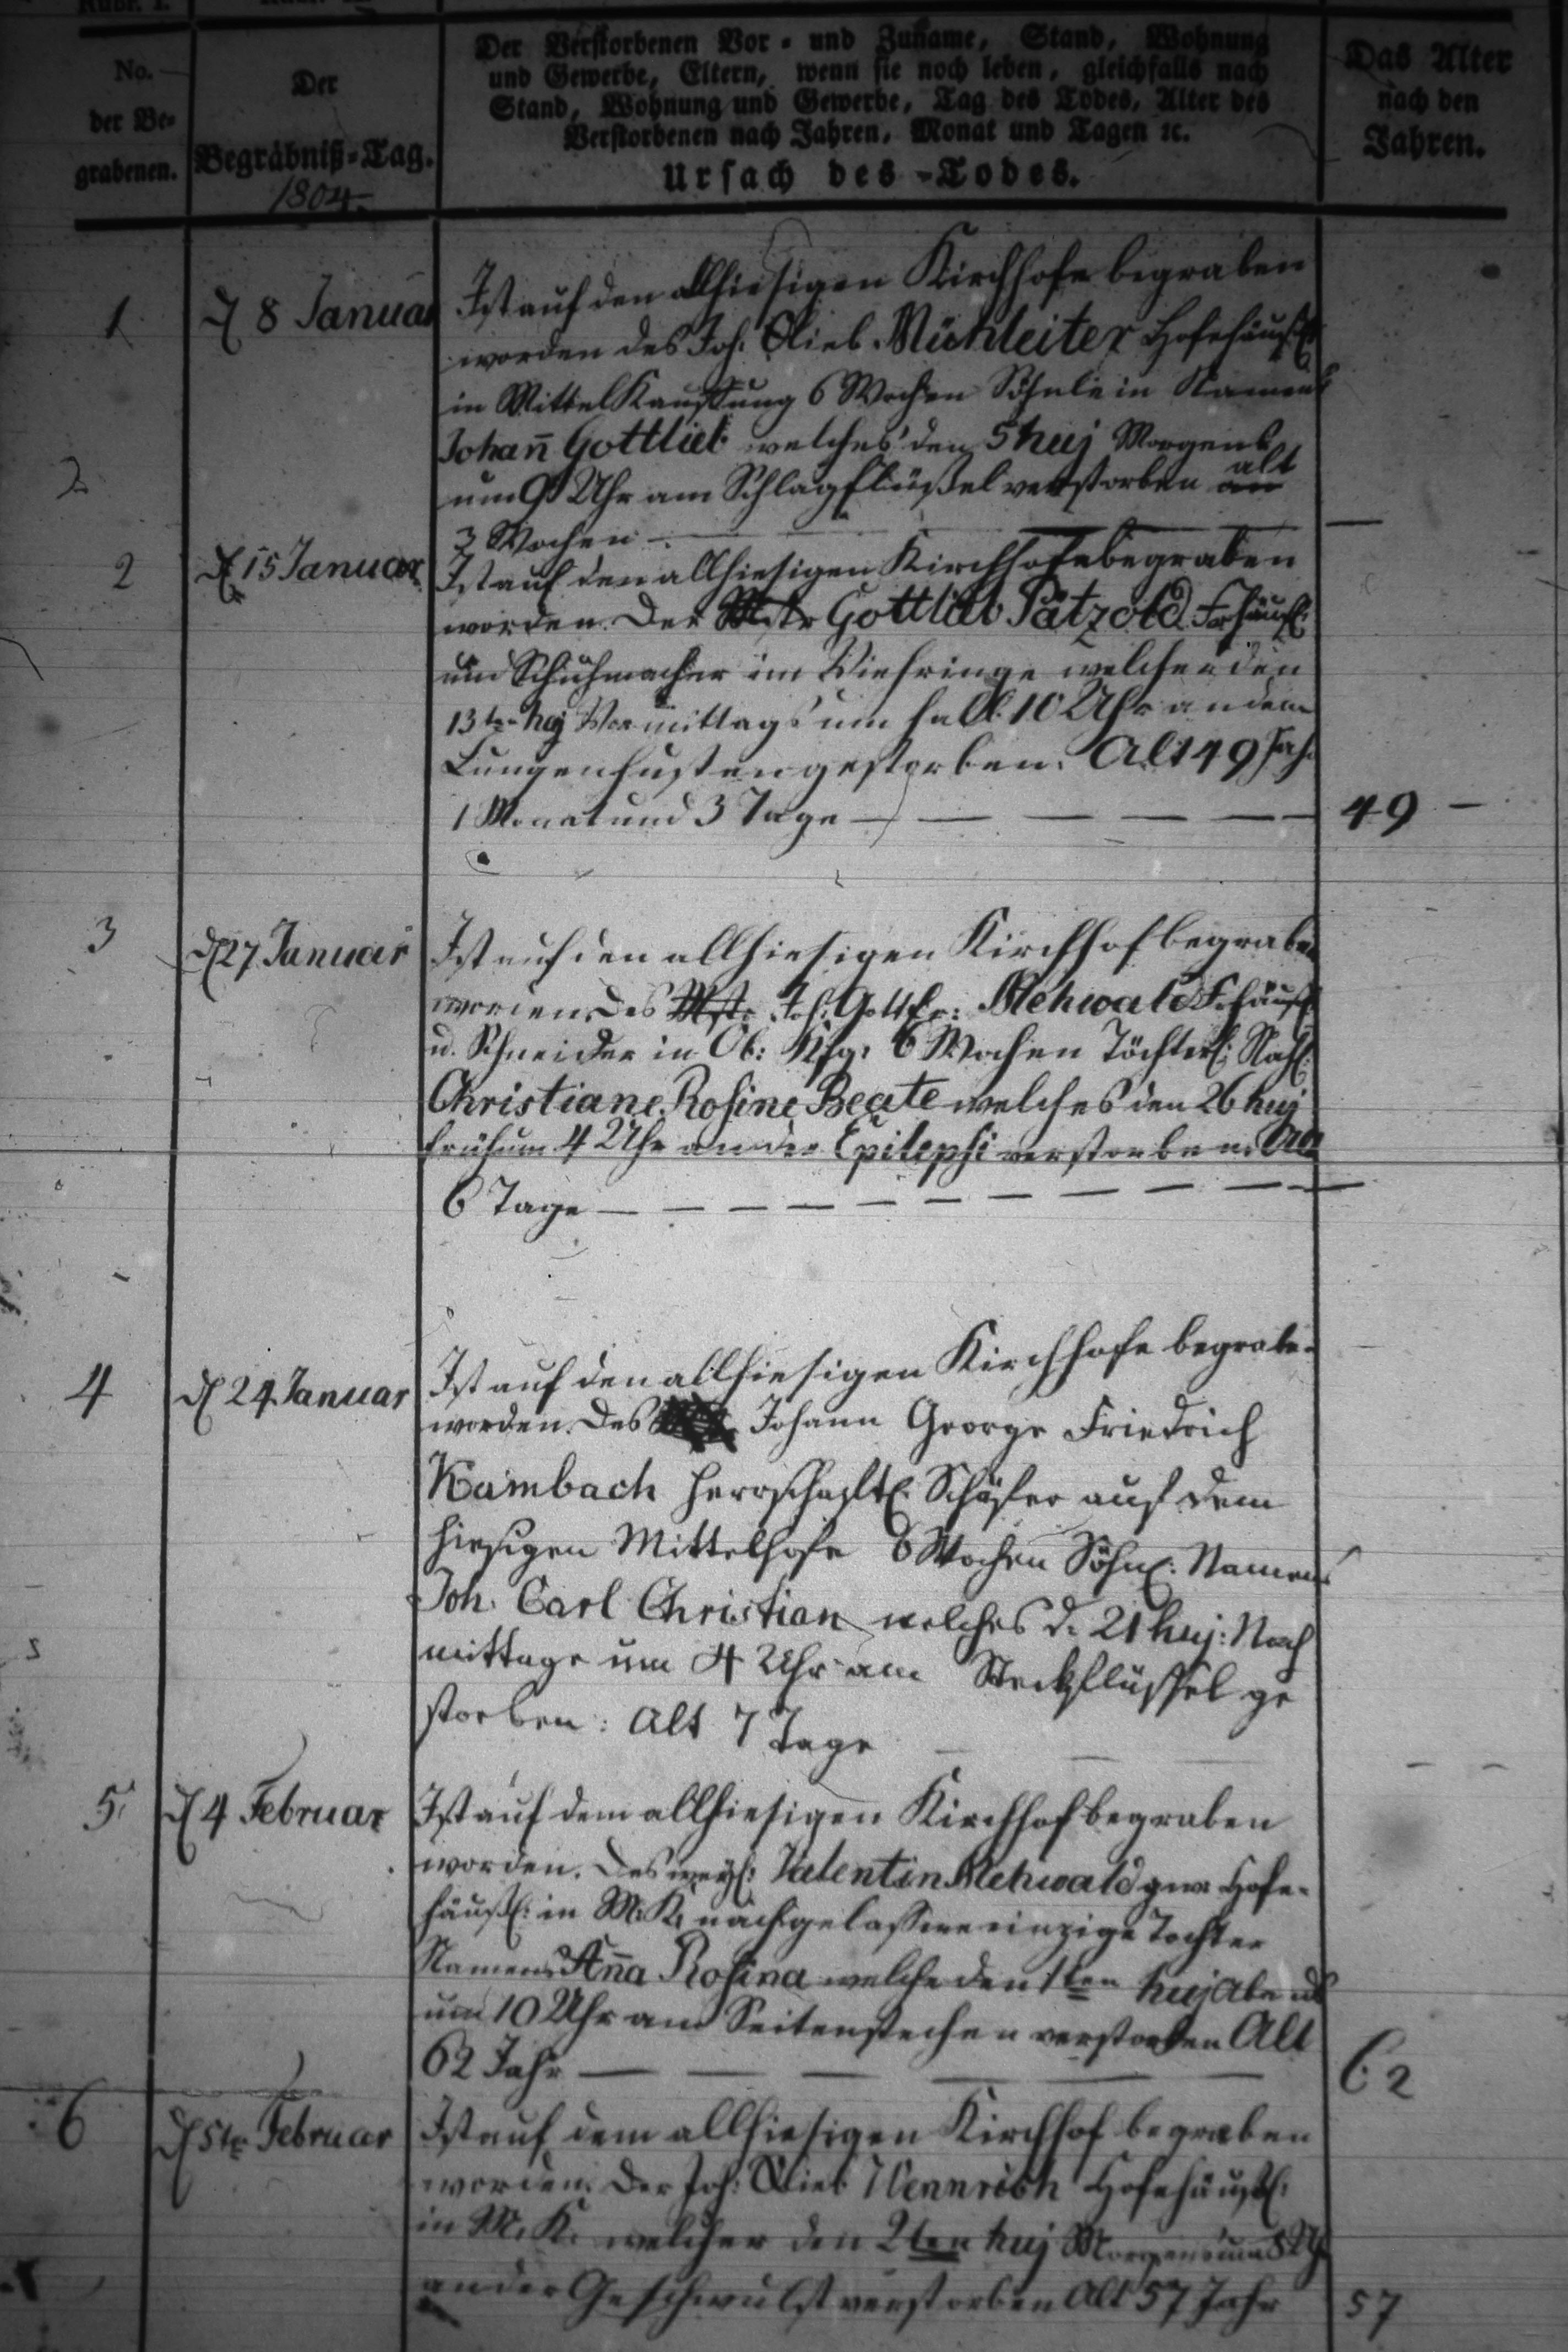 No.
der Be-
grabenen.
Der
Begräbniß-Tag.
1804.
Der Verstorbenen Vor- und Zuname, Stand, Wohnung
und Gewerbe, Eltern, wenn sie noch leben, gleichfalls nach
Stand, Wohnung und Gewerbe, Tag des Todes, Alter des
Verstorbenen nach Jahren, Monat und Tagen ꝛc.
Ursach des Todes.
Das Alter
nach den
Jahren.
1
d 8 Januar
Ist auf den allhiesigen Kirchhofe begraben
worden des Joh: Glieb. Mühleiter Hofehäusl:
in Mittel Kauffung 6 Wochen Söhnlein Namens
Johan̄ Gottlieb welches den 5 huj Morgens
um 9 Uhr am Schlagflüßel verstorben alt
3 Wochen
2
2
d 15 Januar
Ist auf den allhiesigen Kirchhofe begraben
worden. Der Mstr Gottlieb Pätzold Frhäusl:
und Schuhmacher im Viehringe welcher den
13ten huj Vormittags um halb 10 Uhr an dem
Lungenhusten gestorben. Alt 49 Jah.
1 Monat und 3 Tage
49
3
d 27 Januar
Ist auf den allhiesigen Kirchhof begraben
worden des Mstr Joh: Gottfr: Mehwald F.häusl
u. Schneider in Ob: Kfg: 6 Wochen Töchterl: Nahm:
Christiane Rosine Beate welches den 26 huj
früh um 4 Uhr an der Epilepsi verstorben. Alt
6 Tage
4
d 24 Januar
Ist auf den allhiesigen Kirchhofe begraben
worden. Des Johann George Friedrich
Kambach herrschaftl: Schäfer auf dem
hiesigen Mittelhofe 6 Wochen Söhnl: Namens
Joh. Carl Christian welches d. 21 huj: Nach
mittage um 4 Uhr am Steckflüssel ge
storben: Alt 7 Tage
5.
d 4 Februar
Ist auf dem allhiesigen Kirchhof begraben
worden. Des weyl: Valentin Mehwald gew. Hofe-
häusl: in M: K: nachgelassene einzige Tochter
Namens An̄a Rosina welche den 1ten huj Abends
um 10 Uhr am Seitenstechen verstorben Alt
62 Jahr
62
6
d 5te Februar
Ist auf dem allhiesigen Kirchhof begraben
worden. Der Joh: Glieb Hennrich Hofehäusl:
in M. K. welcher den 2ten huj Morgens um 8 Uh
an der Geschwulst verstorben Alt 57 Jahr
57